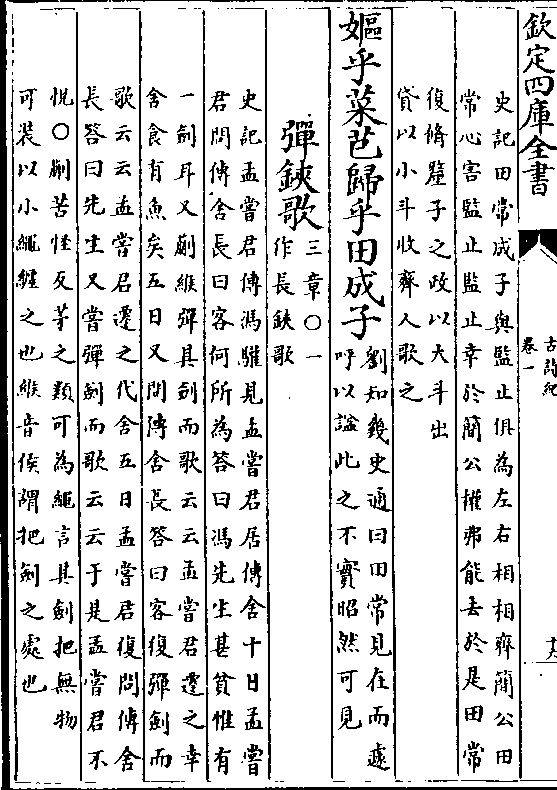 欽定四庫全書
古詩紀
卷一
十六
史記田常成子與監止俱為左右相相齊簡公田
常心害監止監止幸於簡公權弗能去於是田常
復脩釐子之政以大斗出
貸以小斗收齊人歌之
嫗乎菜芑歸乎田成子
劉知幾史通曰田常見在而遽
呼以諡此之不實昭然可見
彈鋏歌
三章○一
作長鋏歌
史記孟嘗君傳馮驩見孟嘗君居傳舍十日孟嘗
君問傳舍長曰客何所為答曰馮先生甚貧惟有
一劍耳又蒯緱彈其劍而歌云云孟嘗君遷之幸
舍食有魚矣五日又問傳舍長答曰客復彈劍而
歌云云孟嘗君遷之代舍五日孟嘗君復問傳舍
長答曰先生又嘗彈劍而歌云云于是孟嘗君不
悅○蒯苦怪反茅之類可為繩言其劍把無物
可裝以小繩纒之也緱音侯謂把劍之處也